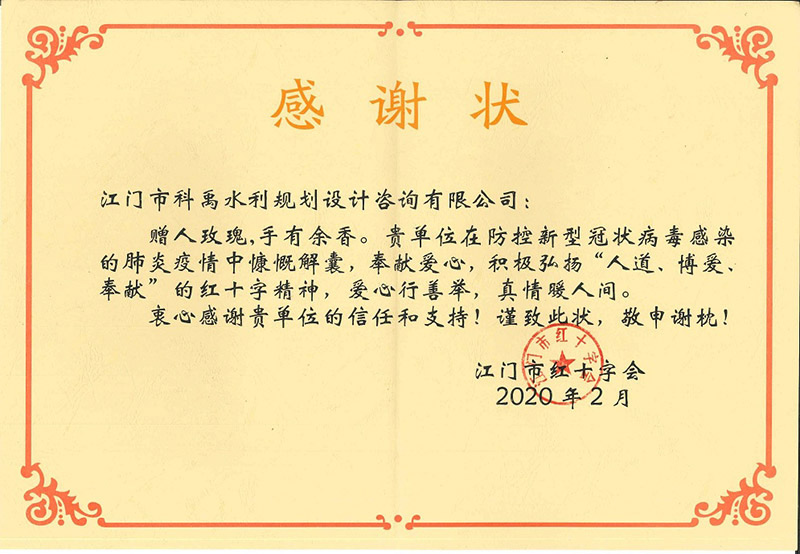 感谢状
江门市科禹水利规划设计咨询有限公司：
赠人玫瑰，手有余香。贵单位在防控新型冠状病毒感染
的肺炎疫情中慷慨解囊，奉献爱心，积极弘扬“人道、博爱、
奉献”的红十字精神，爱心行善举，真情暖人间。
衷心感谢贵单位的信任和支持！谨致此状，敬申谢枕！
江门市红十字会
江门市红十字会
2020年2月